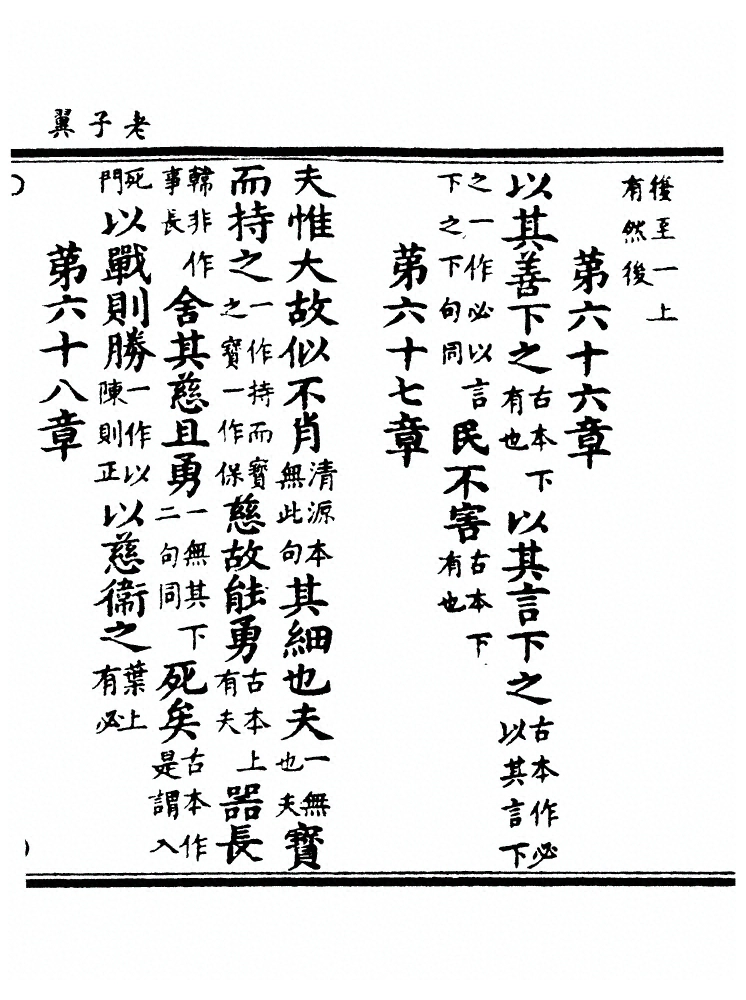 老子翼
後至一上有然後
第六十六章
以其善下之古本下有也以其言下之古本作必以其言下
之一作必以言下之下句同民不害古本下有也
第六十七章
夫惟大故似不肖清源本無此句其細也夫一無也夫寶
而持之一作持而寶之寶一作保慈故能勇古本上有夫器長
韓非作事長舍其慈且勇一無其下二句同死矣古本作是謂入
死門以戰則勝一作以陳則正以慈衛之葉上有必
第六十八章